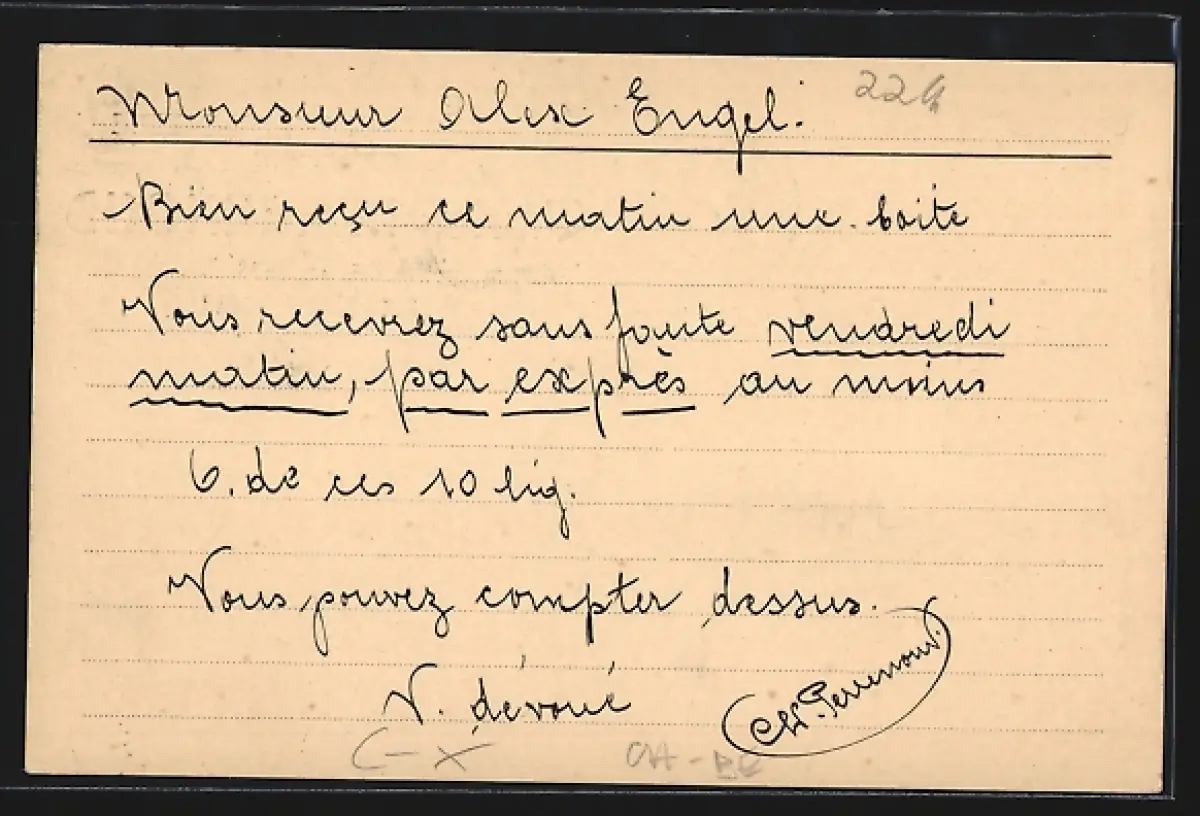 Monsieur Alex Engel.
224
Bien reçu ce matin une boite
Vous recevrez sans faute vendredi
matin, par exprès au moins
6. de ces 10 lig.
Vous pouvez compter dessus.
V. dévoué
Ch. Perrenoud.
C - X
CH - BE